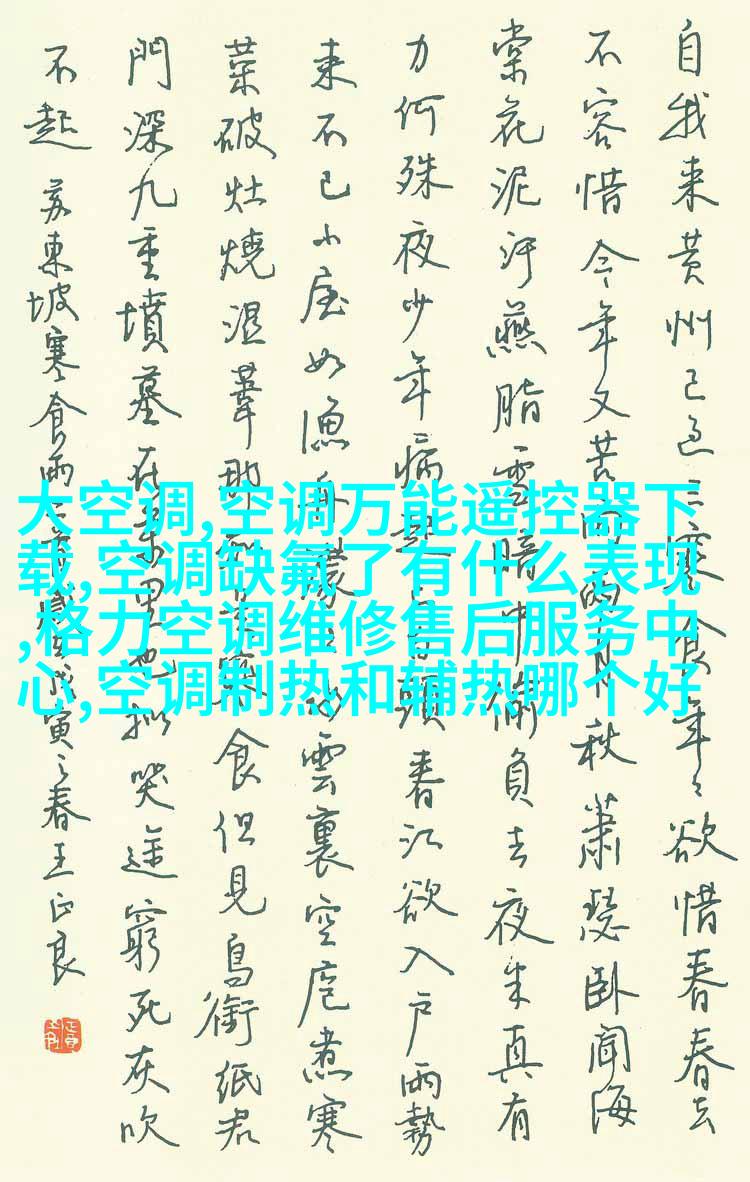 大空调,空调万能遥控器下
载,空调缺氟了有什么表现
,格力空调维修售后服务中
心,空调制热和辅热哪个好
自我来黄州已过三寒食年々欲惜春春去
不容惜今年又苦雨两月秋萧瑟卧闻海
棠花泥汙燕脂雪暗中偷負去夜半真有
力何殊夜少年病起頭春江欲入户雨勢
来不已小屋如漁舟濛雲裏空庖煮寒
菜破灶燒湿葦那知是寒食但見烏銜纸君
門深九重墳墓在萬里也拟哭途窮死灰吹
不起 苏東坡寒食雨戊寅之春王正良